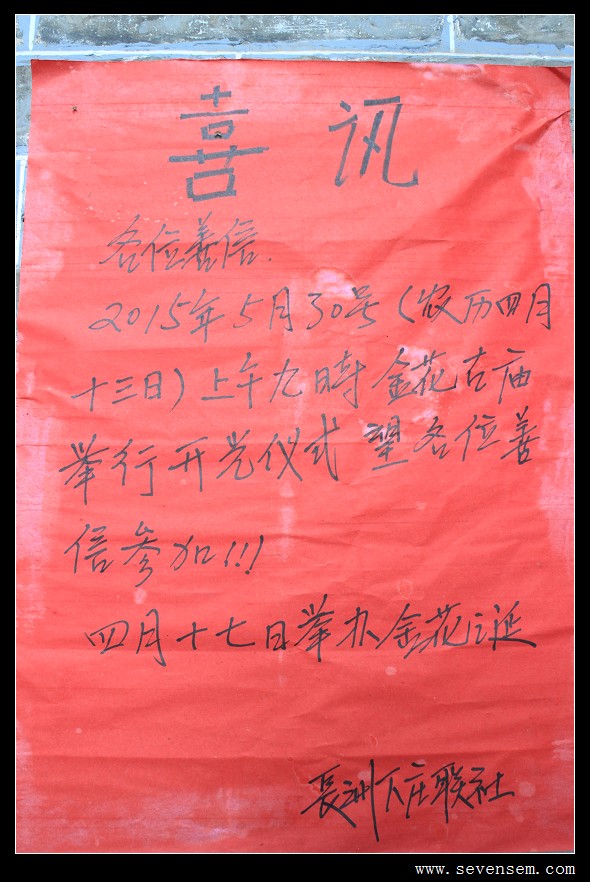 喜讯
各位善信.
2015年5月30号(农历四月
十三日)上午九時金花古庙
举行开光仪式望各位善
信参加!!!
四月十七日举办金花诞
長洲下庄联社
www.sevensem.com